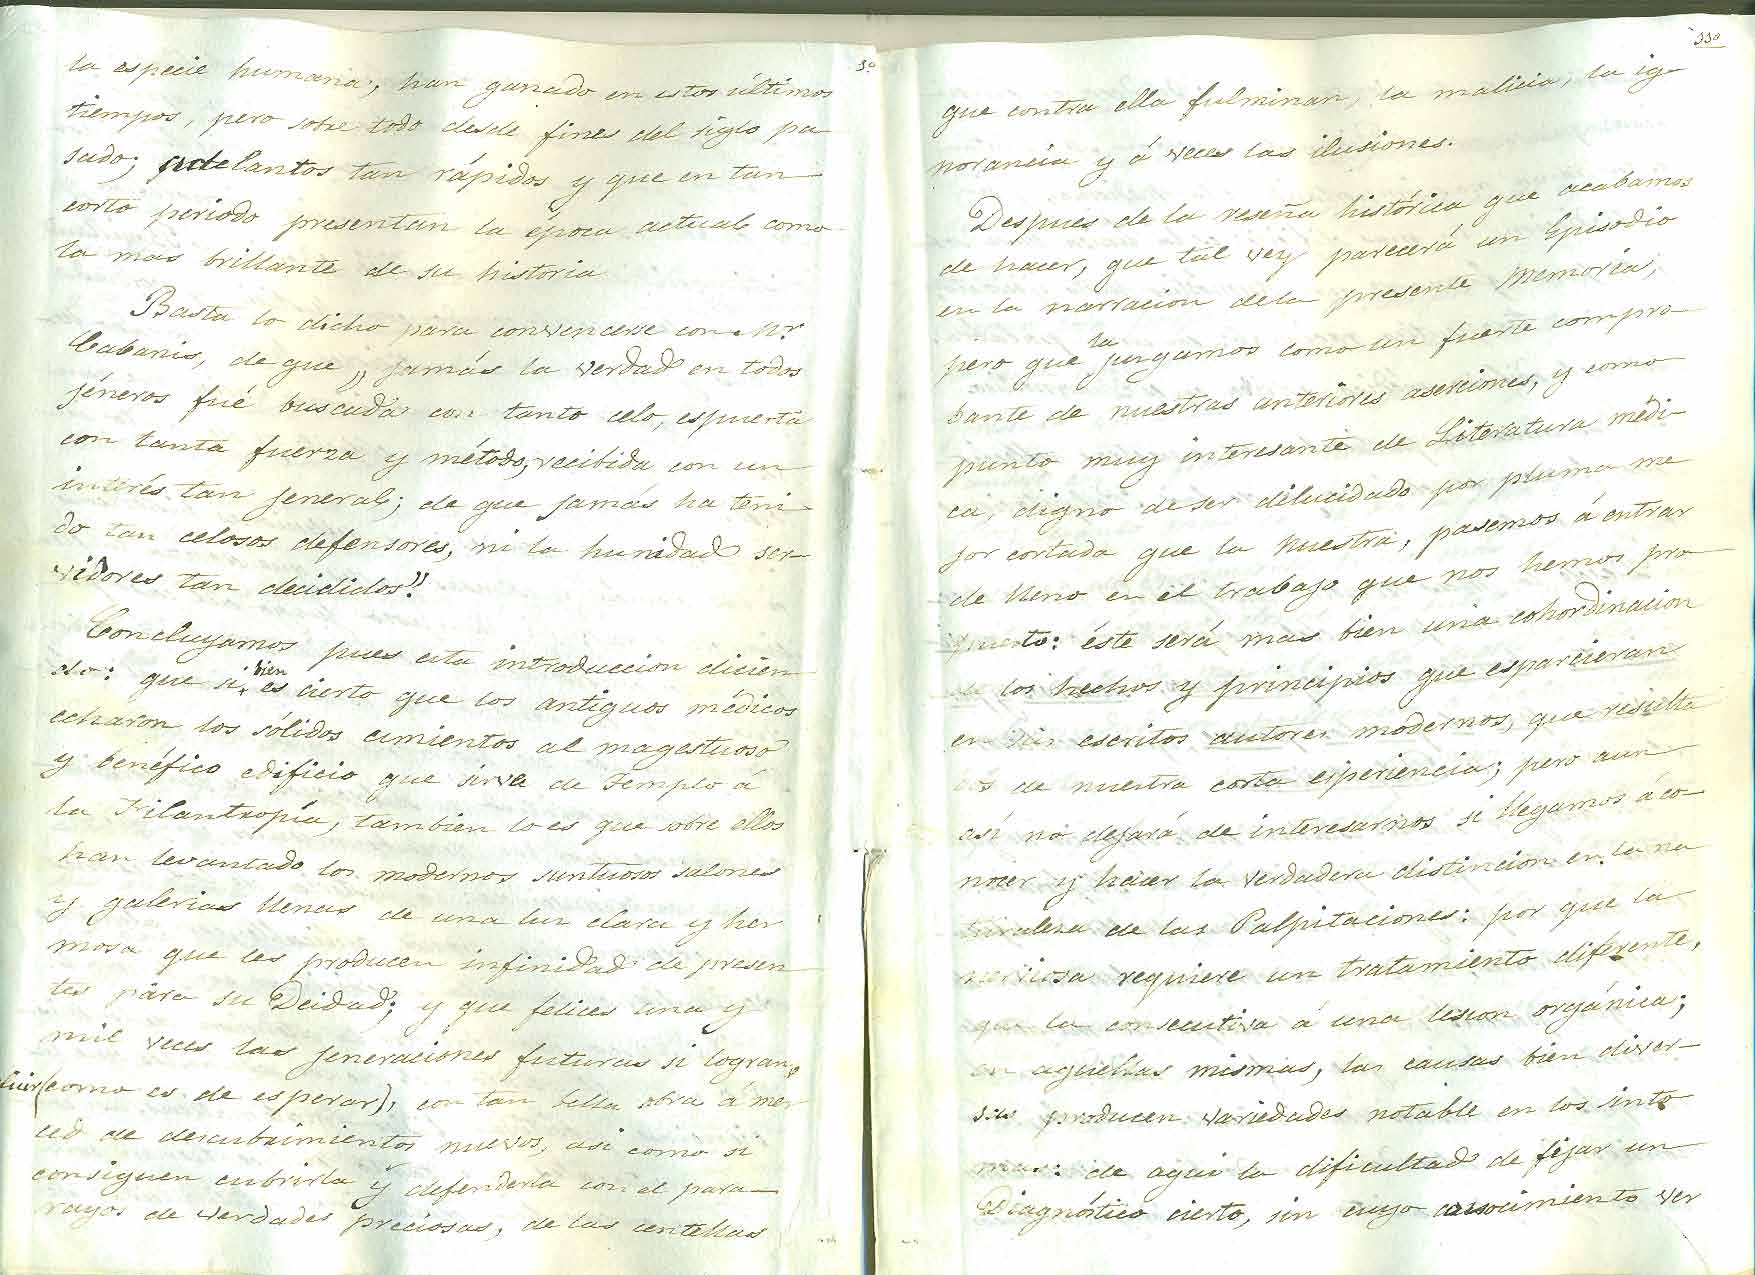 la especie humana; han ganado en estos últimos
tiempos, pero sobre todo desde fines del siglo pa
sado; adelantos tan rápidos y que en tan
corto periodo presentan la época actual como
la mas brillante de su historia
Basta lo dicho para convencerse con Mr.
Cabanis, de que „ jamás la verdad en todos
jéneros fué buscada con tanto celo, espuesta
con tanta fuerza y método, recibida con un
interés tan jeneral; de que jamás ha teni-
do tan celosos defensores, ni la hunidad ser-
vidores tan decididos".
Concluyamos pues esta introduccion dicien-
do: que si bien es cierto que los antiguos médicos
echaron los sólidos cimientos al magestuoso
y benéfico edificio que sirve de Templo á
la Filantropía, tambien lo es que sobre ellos
han levantado los modernos suntuosos salones
y galerias llenas de una luz clara y her
mosa que les producen infinidad de presen
tes para su Deidad; y que felices una y
mil veces las jeneraciones futuras si logran,
(como es de esperar), con tan bella obra á mer
ced de descubrimientos nuevos, asi como si
consiguen cubrirla y defenderla con el para-
rayos de verdades preciosas, de las centellas
3º
33º
que contra ella fulminan, la malicia, la ig-
norancia y á veces las ilusiones.
Despues de la reseña histórica que acabamos
de hacer, que tal vez parecerá un Episodio
en la narracion de la presente Memoria,
pero que la juzgamos como un fuerte compro-
bante de nuestras anteriores aserciones, y como
punto muy interesante de Literatura médi-
ca, digno de ser dilucidado por pluma me
jor cortada que la nuestra, pasemos á entrar
de lleno en el trabajo que nos hemos pro-
puesto: éste será mas bien una cohordinacion
de los hechos y principios que esparcieran
en sus escritos autores modernos, que resulta
dos de nuestra corta esperiencia; pero aun
así no dejará de interesarnos si llegamos á co-
nocer y hacer la verdadera distincion en la na
turaleza de las Palpitaciones: por que la
nerviosa requiere un tratamiento diferente,
que la consecutiva á una lesion orgánica;
en aquellas mismas, las causas bien diver-
sas producen variedades notable en los sinto
mas: de aqui la dificultad de fijar un
Diagnóstico cierto, sin cuyo conocimiento ver